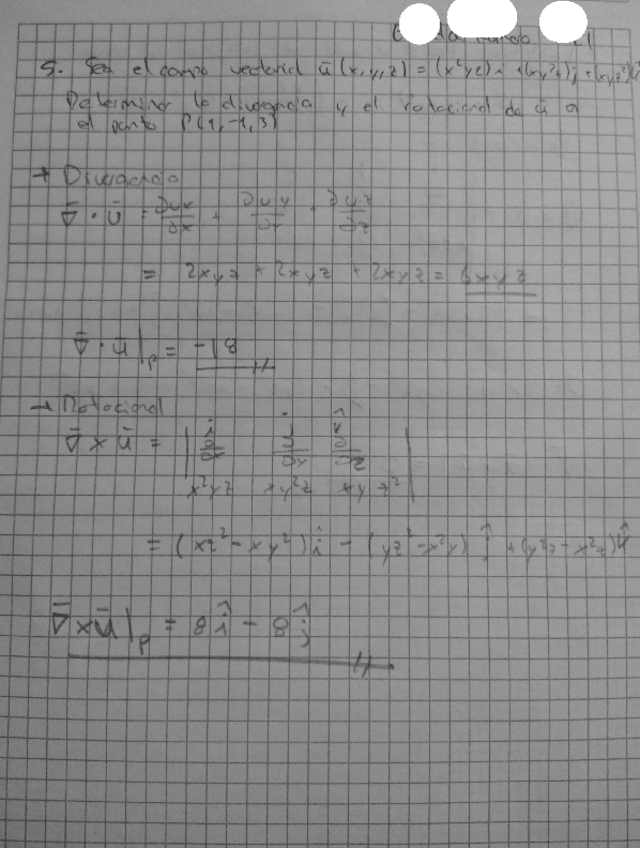 5. Sea el campo vectorial ū(x,y,z) = (x²yz)i + (xy²z)j + (xyz²)k
Determine la divergencia y el rotacional de ū en
el punto P(1,-1,3)
→ Divergencia
∇̄ · ū = ∂ux/∂x + ∂uy/∂y + ∂uz/∂z
= 2xyz + 2xyz + 2xyz = 6xyz
∇̄ · ū|p = -18
→ Rotacional
∇̄ × ū = | î ĵ k̂
∂/∂x ∂/∂y ∂/∂z |
x²yz xy²z xyz²
= (xz² - xy²) î - (yz² - x²y) ĵ + (y²z - x²z) k̂
∇̄ × ū|p = 8î - 8ĵ